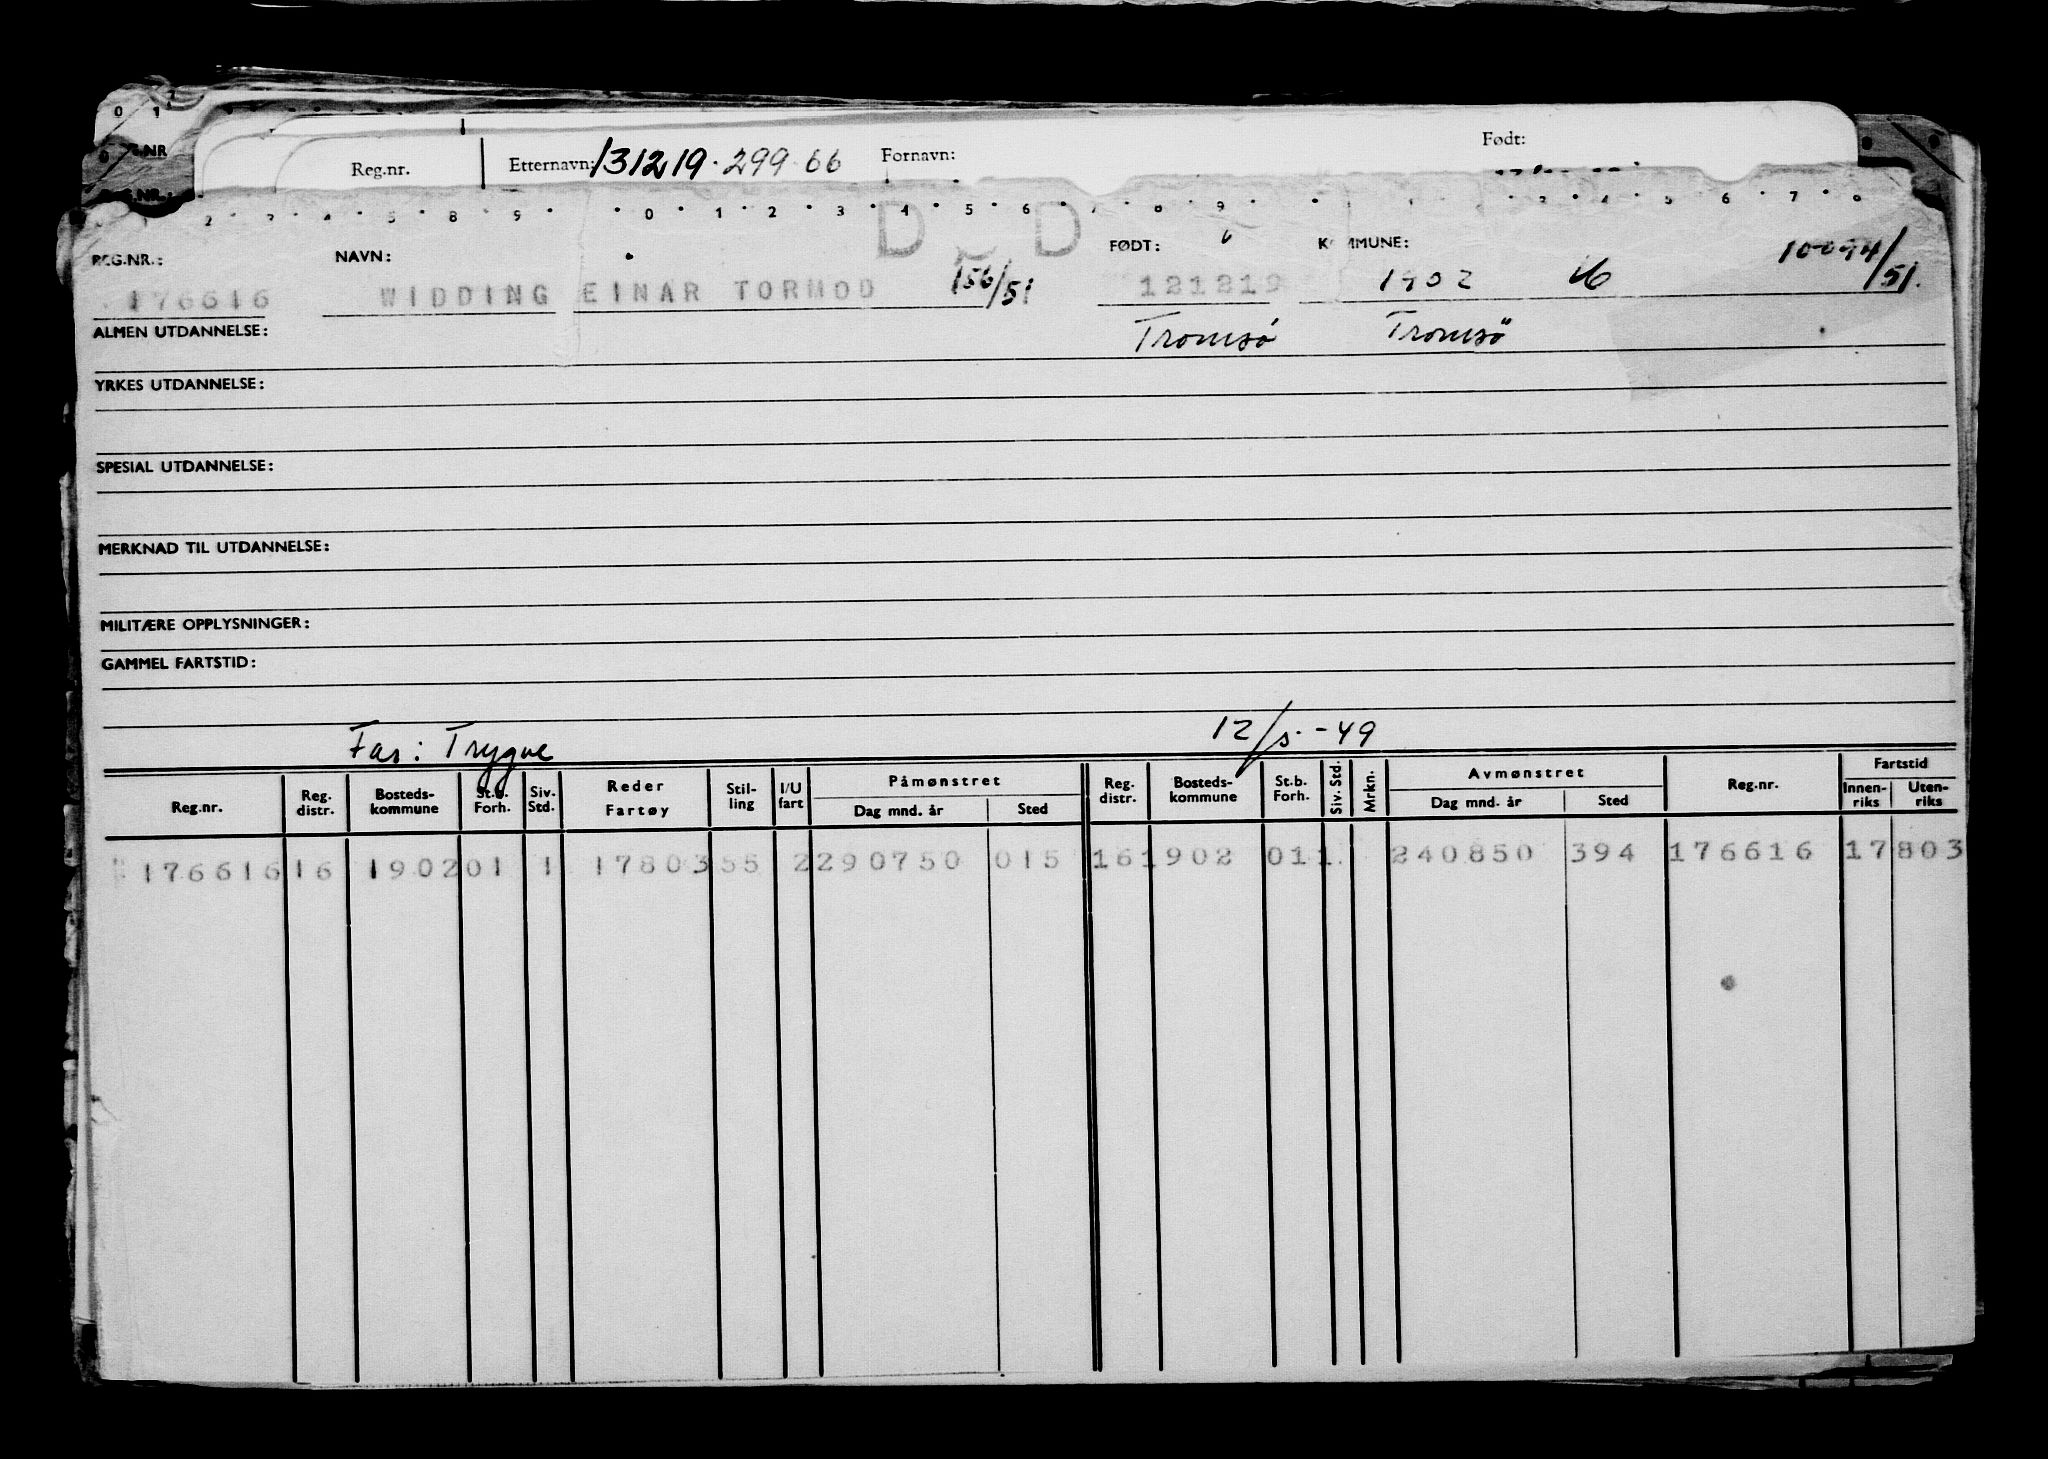 0 1
Reg.nr. Etternavn: 131219.299 66 Fornavn: Født:
REG.NR.: NAVN: DØD FØDT: KOMMUNE: 10-094/51.
176616 WIDDING EINAR TORMOD 156/51 121219 1902 16
ALMEN UTDANNELSE: Tromsø Tromsö
YRKES UTDANNELSE:
SPESIAL UTDANNELSE:
MERKNAD TIL UTDANNELSE:
MILITÆRE OPPLYSNINGER:
GAMMEL FARTSTID:
Far: Trygve 12/5.-49
Reg.nr. Reg. distr. Bosteds-kommune St.b. Forh. Siv. Std. Reder Fartøy Stil-ling I/U fart Påmønstret Dag mnd. år Sted Reg. distr. Bosteds-kommune St.b. Forh. Siv. Std. Mrkn. Avmønstret Dag mnd. år Sted Reg.nr. Fartstid Innen-riks Uten-riks
176616 16 1902 01 1 17803 55 2 290750 015 16 1902 01 1. 240850 394 176616 17803